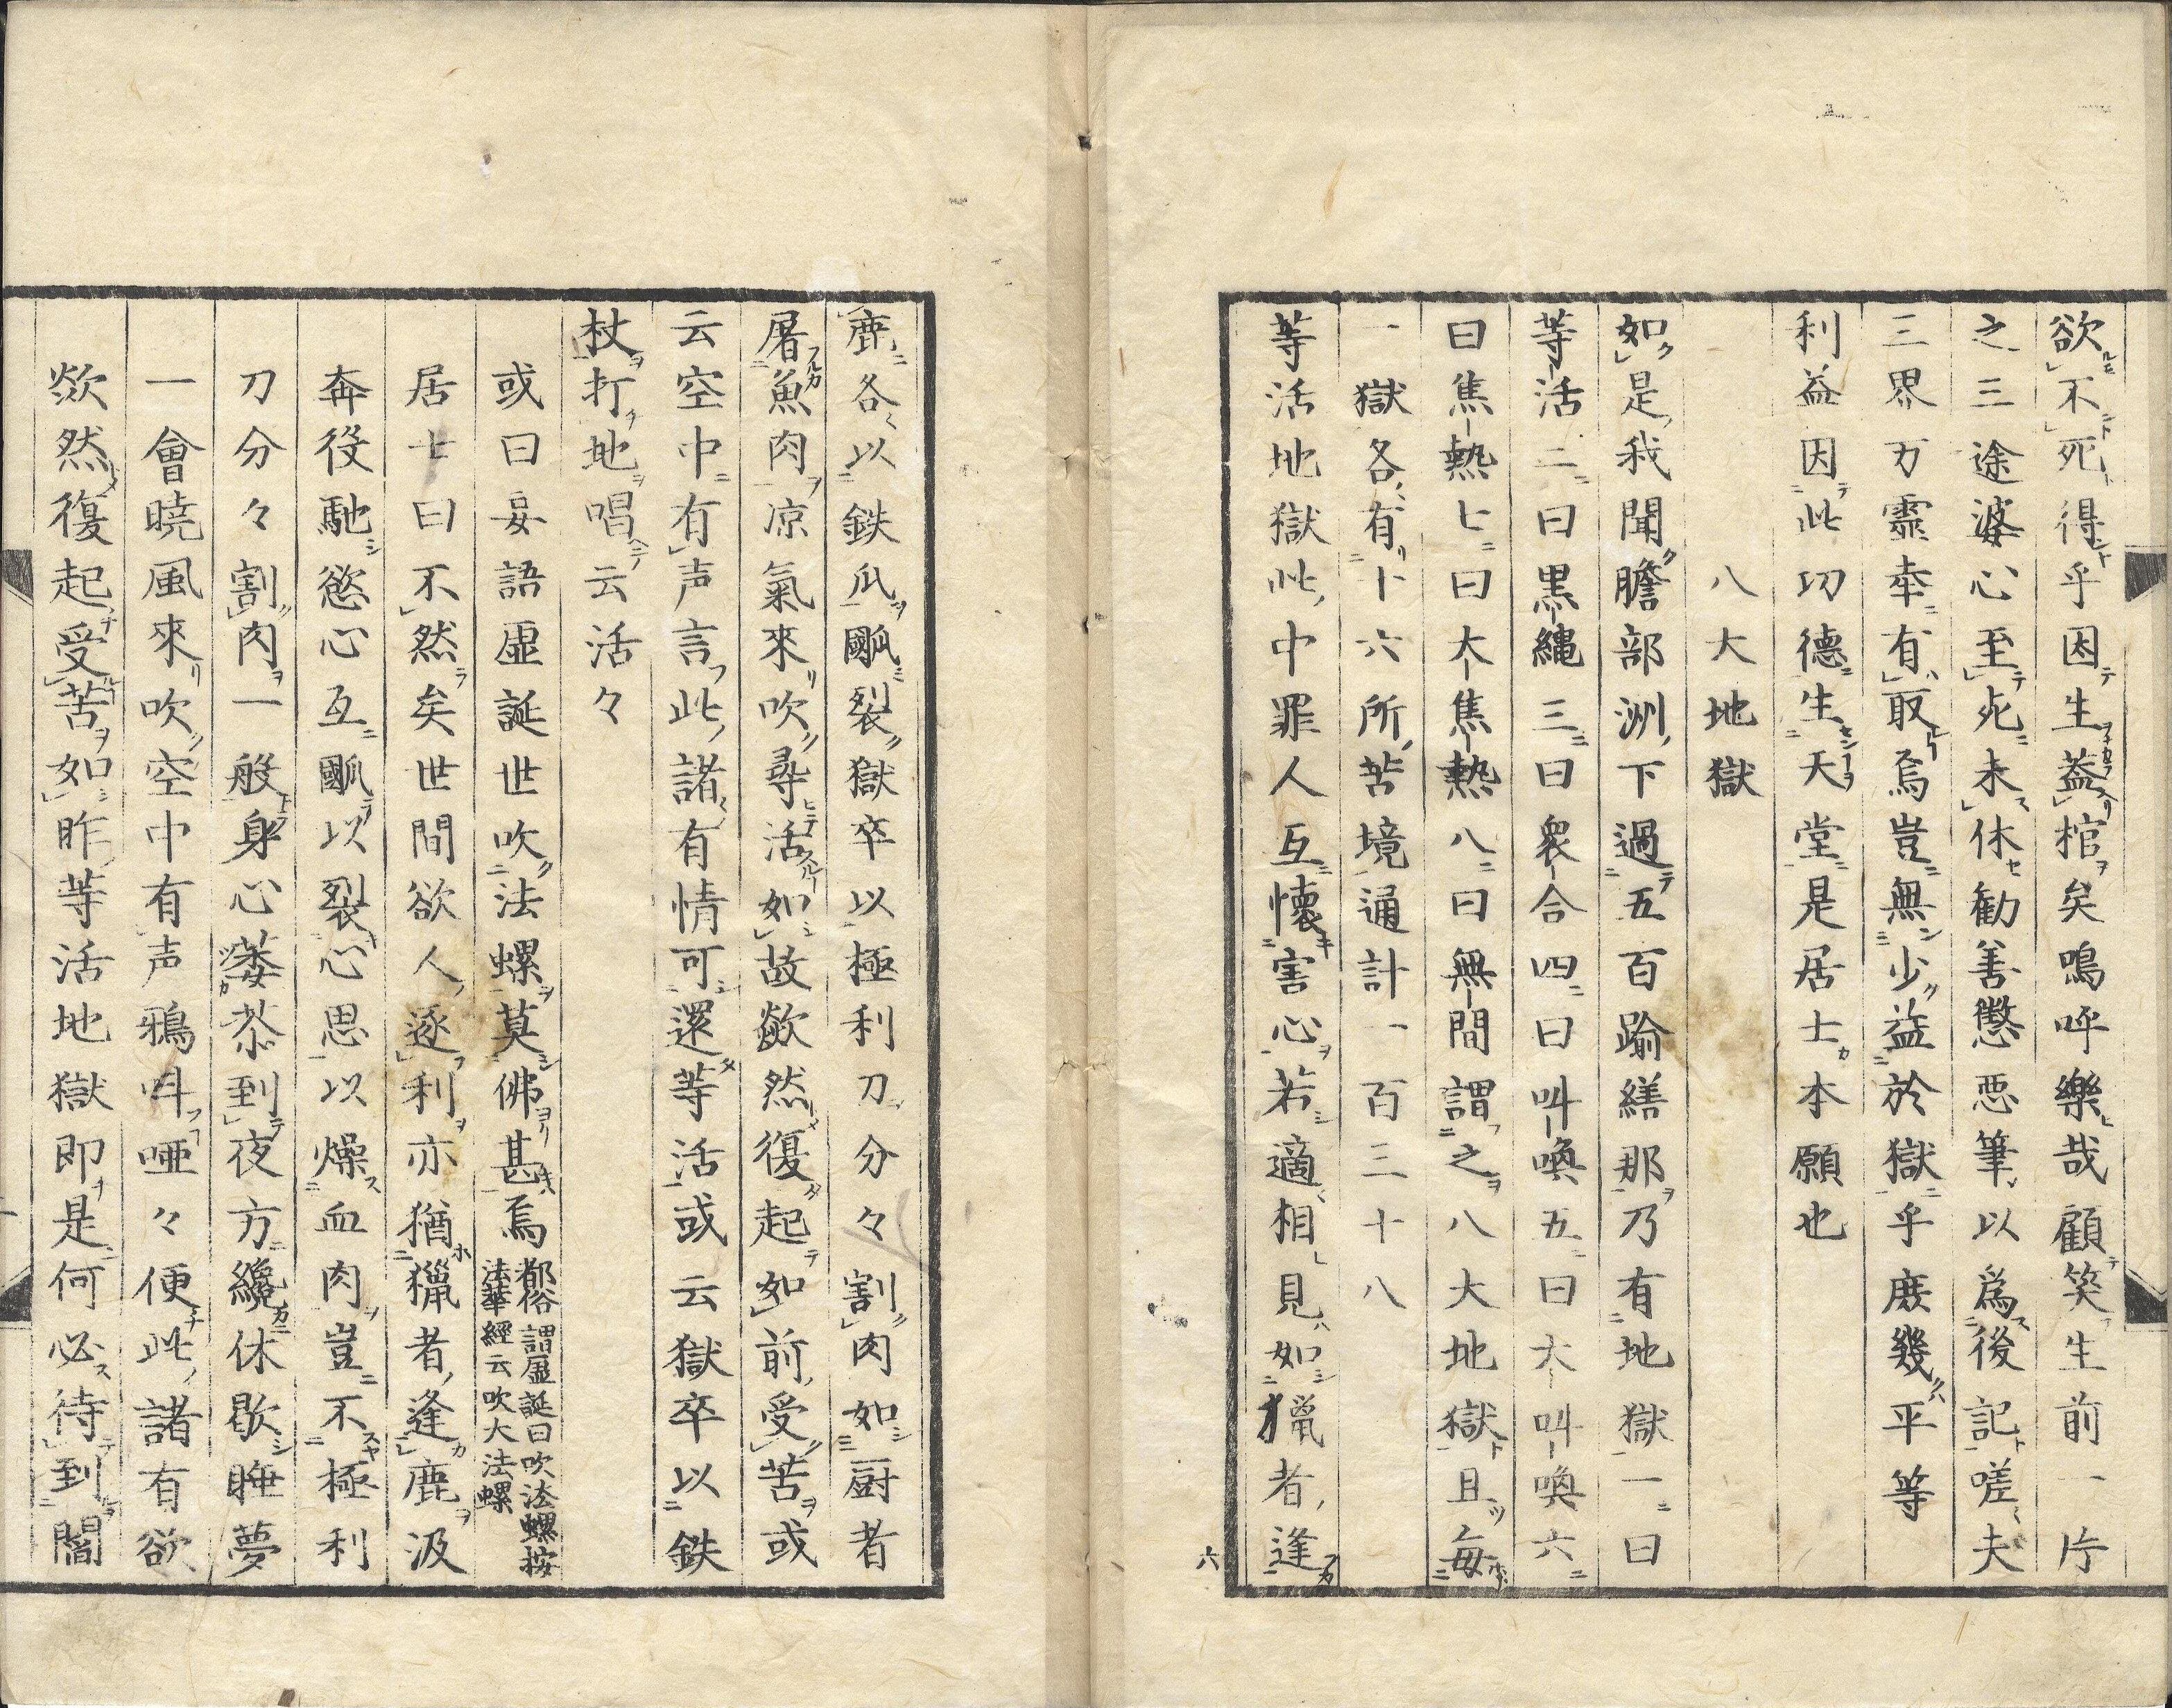 欲不死得乎因生蓋棺矣嗚呼樂哉顧笑生前一片
之三途婆心至死未休勸善懲惡筆以爲後記嗟夫
三界万靈幸有取焉豈無少益於獄乎庶幾平等
利益因此功德生天堂是居士本願也
八大地獄
如是我聞瞻部洲下過五百踰繕那乃有地獄一曰
等活二曰黒縄三曰衆合四曰叫喚五曰大叫喚六
曰焦熱七曰大焦熱八曰無間謂之八大地獄且毎
一獄各有十六所苦境通計一百三十八
等活地獄此中罪人互懷害心若適相見如獵者逢
六
鹿各以鉄爪𤔩裂獄卒以極利刀分々割肉如厨者
屠魚肉凉氣來吹尋活如故歘然復起如前受苦或
云空中有声言此諸有情可還等活或云獄卒以鉄
杖打地唱云活々
或曰妄語虛誕世吹法螺莫佛甚焉
都俗謂虛誕曰吹法螺按
法華經云吹大法螺
居士曰不然矣世間欲人逐利亦猶獵者逢鹿汲
奔役馳慾心互𤔩以裂心思以燥血肉豈不極利
刀分々割肉一般身心萎苶到夜方纔休歇睡夢
一會曉風來吹空中有声鴉叫啞々便此諸有欲
歘然復起受苦如昨等活地獄即是何必待到閻